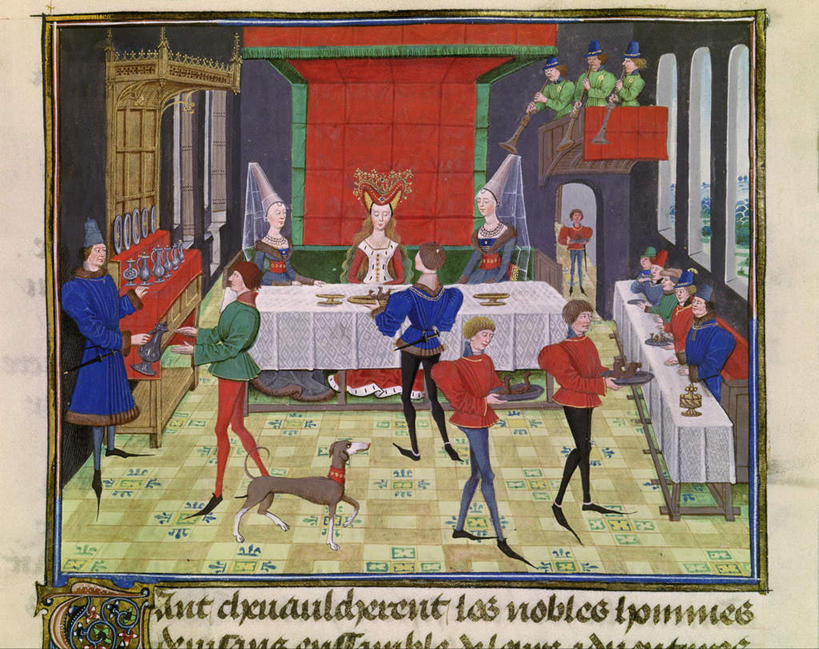 Tant cheuaulcherent les nobles hommes
deuisans ensamble de leurs aduentures